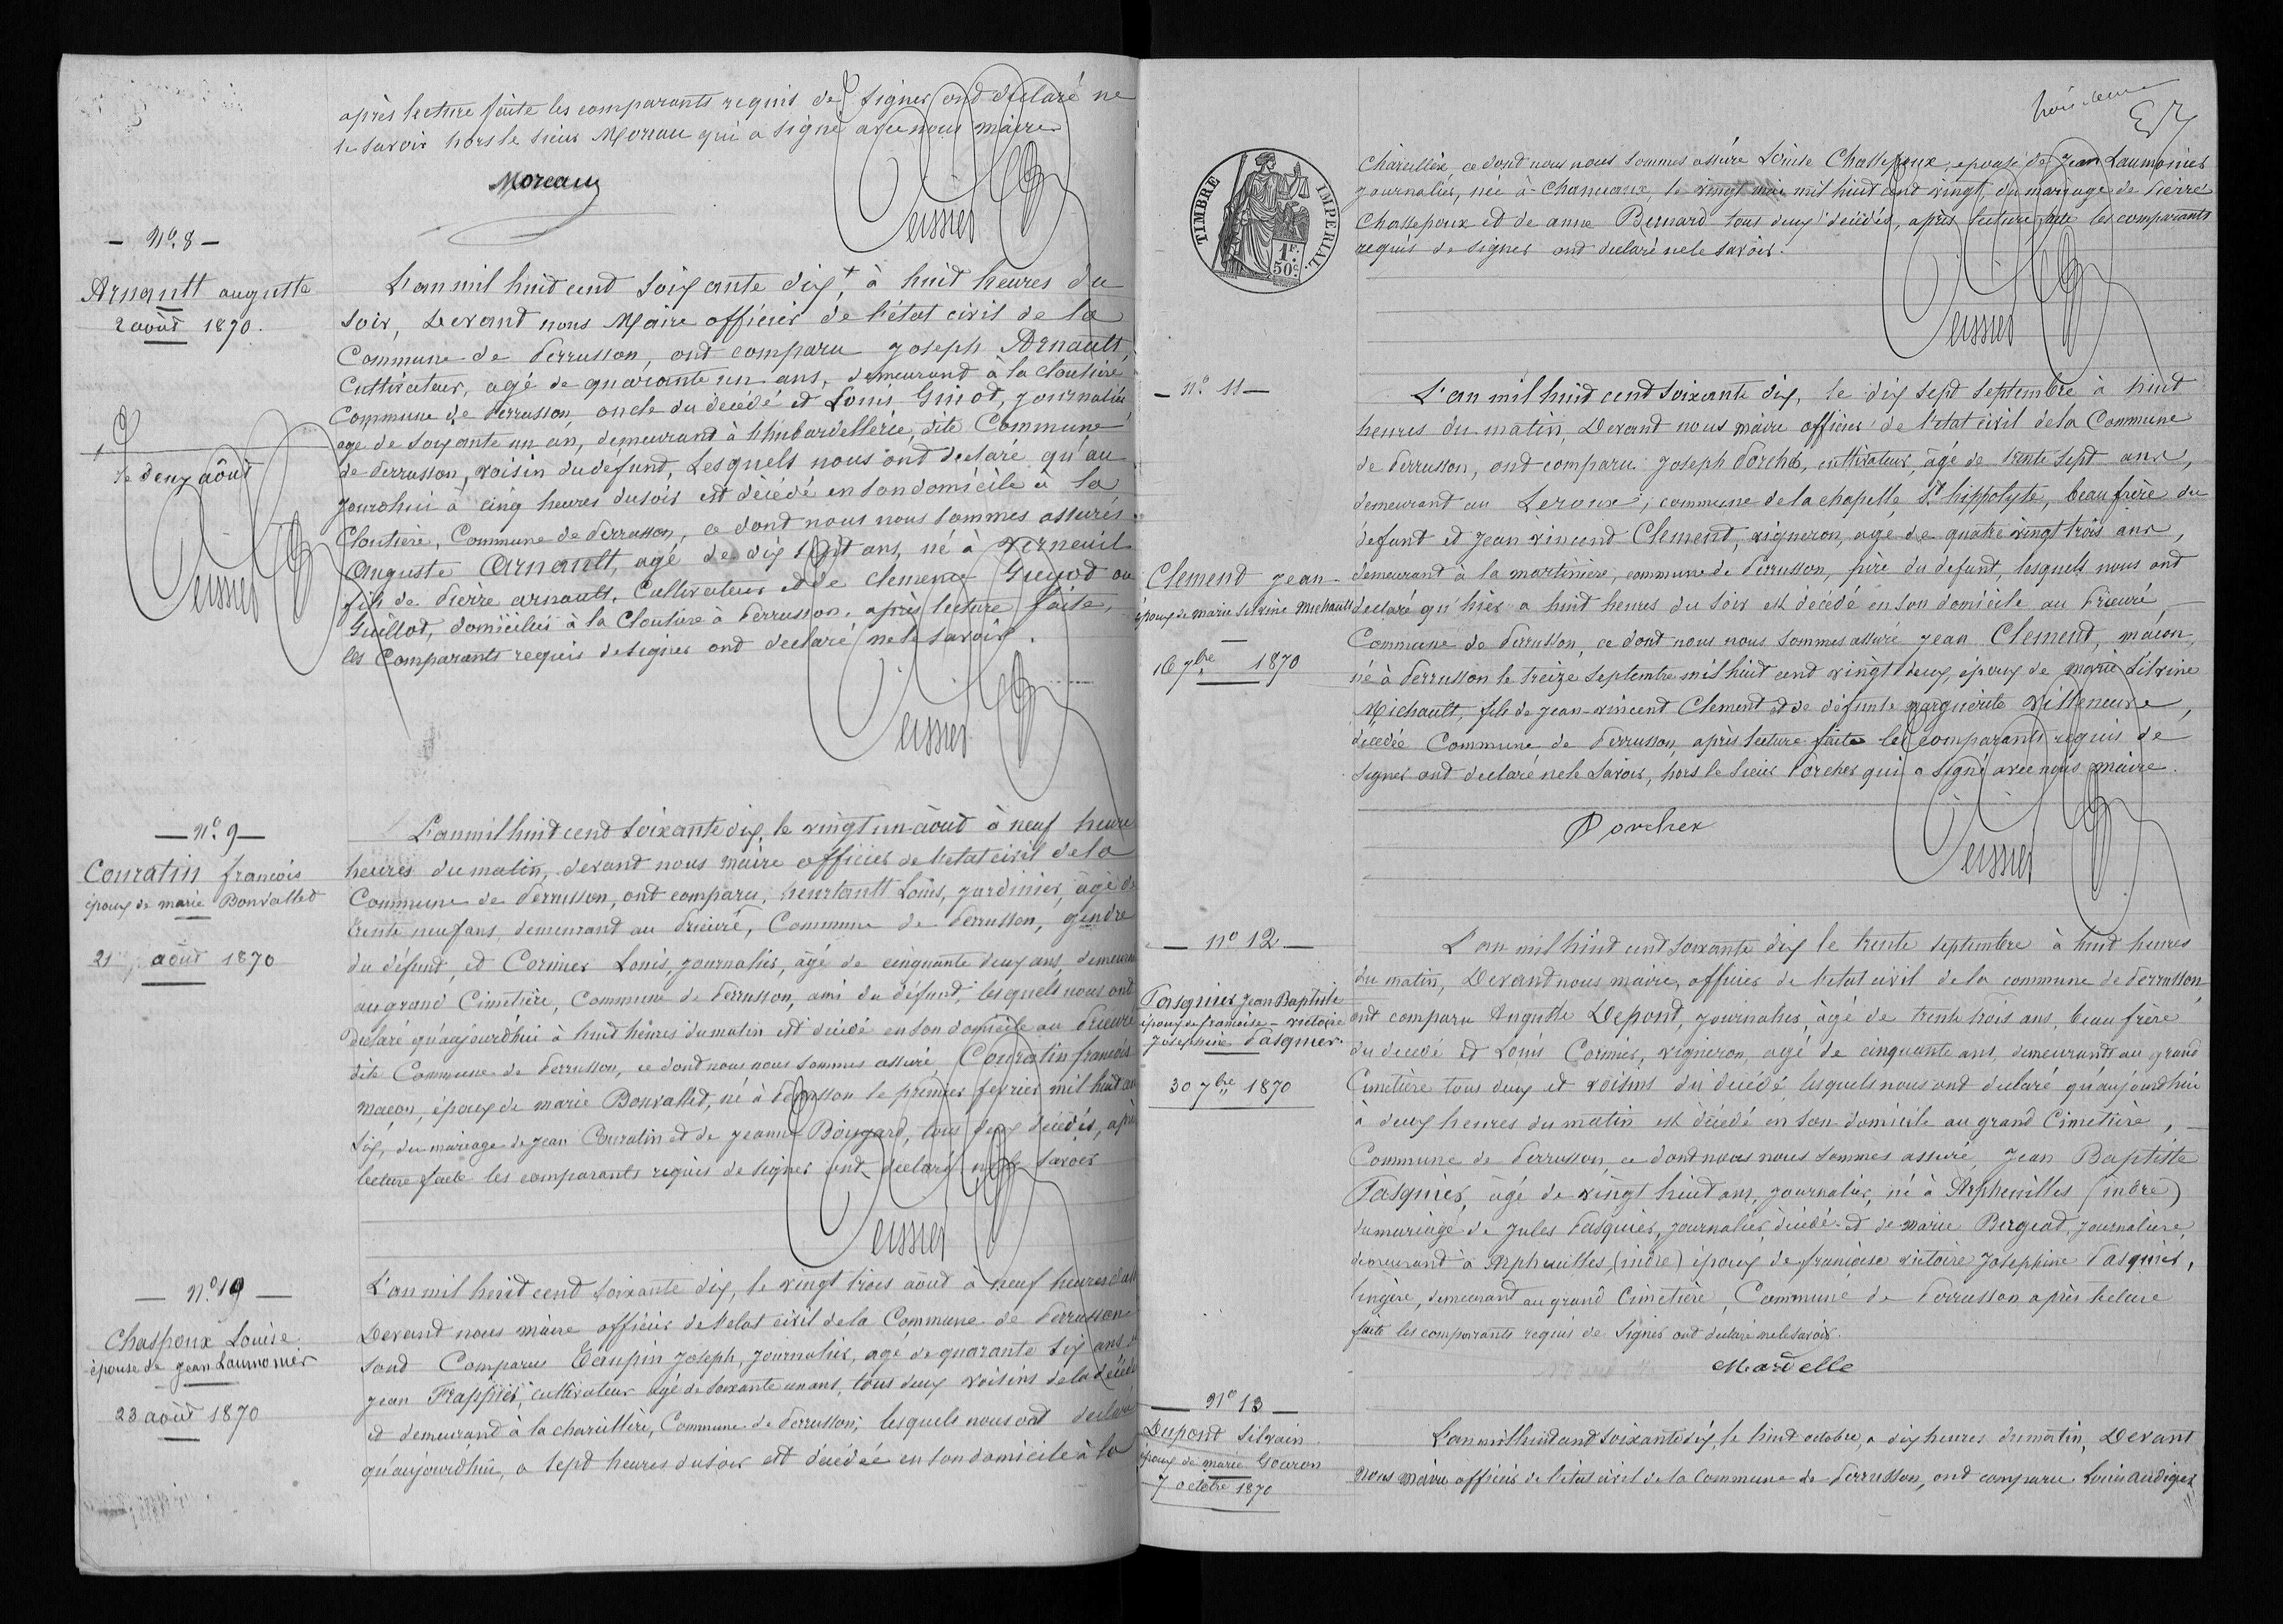 après lecture faite les comparants requis de signer ont déclaré ne
le savoir hors le sieur Moreau qui a signé avec nous maire
Moreau
Teissier
— N.º 8 —
Arnault auguste
2 août 1870.
L'an mil huit cent soixante dix, + à huit heures du
soir, Devant nous Maire officier de l'état civil de la
Commune de Perrusson, ont comparu Joseph Arnault,
Cultivateur, agé de quarante un ans, demeurand à la Cloutière
Commune de Perrusson, oncle du décédé et Louis Guiot, journalier
agé de soixante un an, demeurant à l'hubardellerie, dite Commune
de Perrusson, voisin du défunt, Lesquels nous ont declaré qu'au
jourdhui à cinq heures du soir est décédé en son domicile à la
Cloutière, Commune de Perrusson, ce dont nous nous sommes assurés
Auguste Arnault, agé de dix sept ans, né à Verneuil
fils de Pierre arnault, Cultivateur et de clemence Guyod ou
Guillot, domiciliés à la Cloutière à Perrusson, après lecture faite,
les Comparants requis de signer ont declaré ne le savoir.
+
le deux août
Teissier
Teissier
— N.º 9 —
Couratin francois
époux de marie Bonvalled
21 août 1870
L'an mil huit cent soixante dix, le vingt un août à neuf heure
heures du matin, devant nous maire officier de l'etat civil de la
Commune de Perrusson, ont comparu, heurtault Louis, jardinier, agé de
trente neuf ans, demeurant au Prieuré, Commune de Perrusson, gendre
du défunt, et Cormier Louis, journalier, âgé de cinquante deux ans, demeurant
au grand Cimetière, Commune de Perrusson, ami du défunt, lesquels nous ont
Déclaré qu'aujourd'hui à huit heures du matin est décédé en son domicile au Prieuré
dite Commune de Perrusson, ce dont nous nous sommes assuré, Couratin francois
macon, époux de marie Bonvalled, né à Perrusson le premier fevrier mil huit cent
six, du mariage de jean Couratin et de jeanne Bougard, tous deux décédés, après
lecture faite les comparants requis de signer ont declaré ne le savoir
Teissier
— N.º 10 —
Chaspoux Louise
épouse de jean Laumonier
23 août 1870
L'an mil huit cent soixante dix, le vingt trois août à neuf heures du
Devant nous maire officier de l'etat civil de la Commune de Perrusson
sont Comparus Taupin Joseph, journalier, agé de quarante six ans et
jean Frappier, cultivateur agé de soixante un ans, tous deux voisins de la décédée
et demeurand à la charcillière, Commune de Perrusson, lesquels nous ont declaré
qu'aujourd'hui, a sept heures du soir est decédée en son domicile à la
TIMBRE IMPERIAL.
1F.
50C.
Charcillère, ce dont nous nous sommes assuré Louise Chassepoux, épouse de Jean Laumonier
journalier, née à Chanceaux, le vingt mai mil huit cent vingt, du mariage de Pierre
Chassepoux et de anne Bernard tous deux décédés, après lecture faite les comparants
requis de signer ont declaré ne le savoir.
Teissier
— N.º 11 —
Clement Jean
époux de Marie Silvine Michault
16 7bre 1870
L'an mil huit cent soixante dix, le dix sept septembre à huit
heures du matin, Devant nous maire officier de l'etat civil de la Commune
de Perrusson, ont comparu Joseph Porcher, cultivateur, âgé de trente sept ans,
demeurant au Leroux, commune de la chapelle St hippolyte, beau frère du
défunt et jean vincent Clement, vigneron, agé de quatre vingt trois ans,
demeurant à la martinière, commune de Perrusson, père du défunt, lesquels nous ont
declaré qu'hier a huit heures du soir est décédé en son domicile au Prieuré,
Commune de Perrusson, ce dont nous nous sommes assuré jean Clement, macon,
né à Perrusson le treize septembre mil huit cent vingt deux, époux de Marie Silvine
Michault, fils de jean-vincent Clement et de défunte marguerite Villeneuve,
décédée Commune de Perrusson, après lecture faite les comparants requis de
signer ont declaré ne le savoir, hors le sieur Porcher qui a signé avec nous maire.
Porcher
Teissier
— Nº 12 —
Pasquier Jean Baptiste
époux de francoise-victoire
Josephine Pasquier.
30 7bre 1870
L'an mil huit cent soixante dix le trente septembre à huit heures
du matin, Devant nous maire, officier de l'etat civil de la commune de Perrusson
ont comparu Auguste Depont, journalier, âgé de trente trois ans, beau frère
du decedé et Louis Cormier, vigneron, agé de cinquante ans, demeurants au grand
Cimetière tous deux et voisins du décédé lesquels nous ont declaré qu'aujourd'hui
à deux heures du matin est décédé en son domicile au grand Cimetière,
Commune de Perrusson, ce dont nous nous sommes assuré, Jean Baptiste
Pasquier, âgé de vingt huit ans, journalier, né à Arpheuilles (indre)
du mariage de Jules Pasquier, journalier, décédé et de marie Bergeot, journalière,
demeurant à Arpheuilles, (indre) époux de francoise victoire Josephine Pasquier,
lingère, demeurant au grand Cimetière, Commune de Perrusson après lecture
faite les comparants requis de signer ont declaré ne le savoir.
Mardelle
— Nº 13 —
Dupont Silvain
époux de marie Gouron
7 octobre 1870
L'an mil huit cent soixante dix, le huit octobre, a dix heures du matin, Devant
nous maire officier de l'etat civil de la Commune de Perrusson, ont comparu Louis audiger